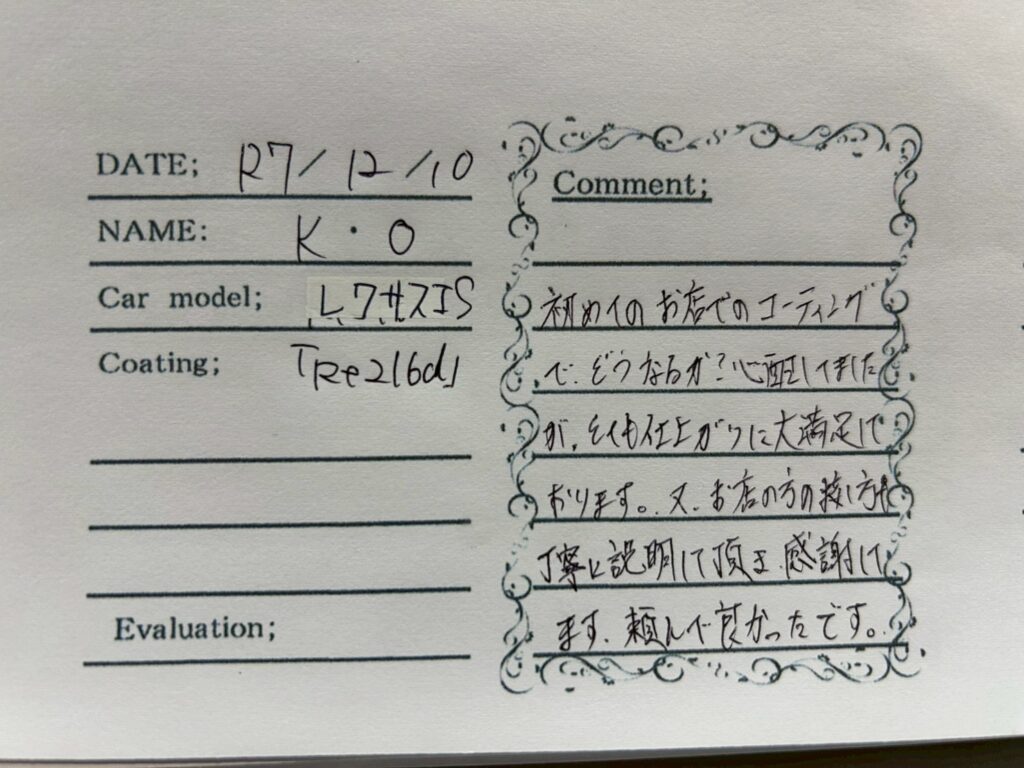 DATE; R7/12/10
NAME: K・O
Car model; レクサスIS
Coating;
Evaluation;
Comment;
初めてのお店でのコーティング
で、どうなるか?心配してました
が、とても仕上がりに大満足して
おります。又、お店の方の接し方も
丁寧に説明して頂き 感謝して
ます、頼んで良かったです。